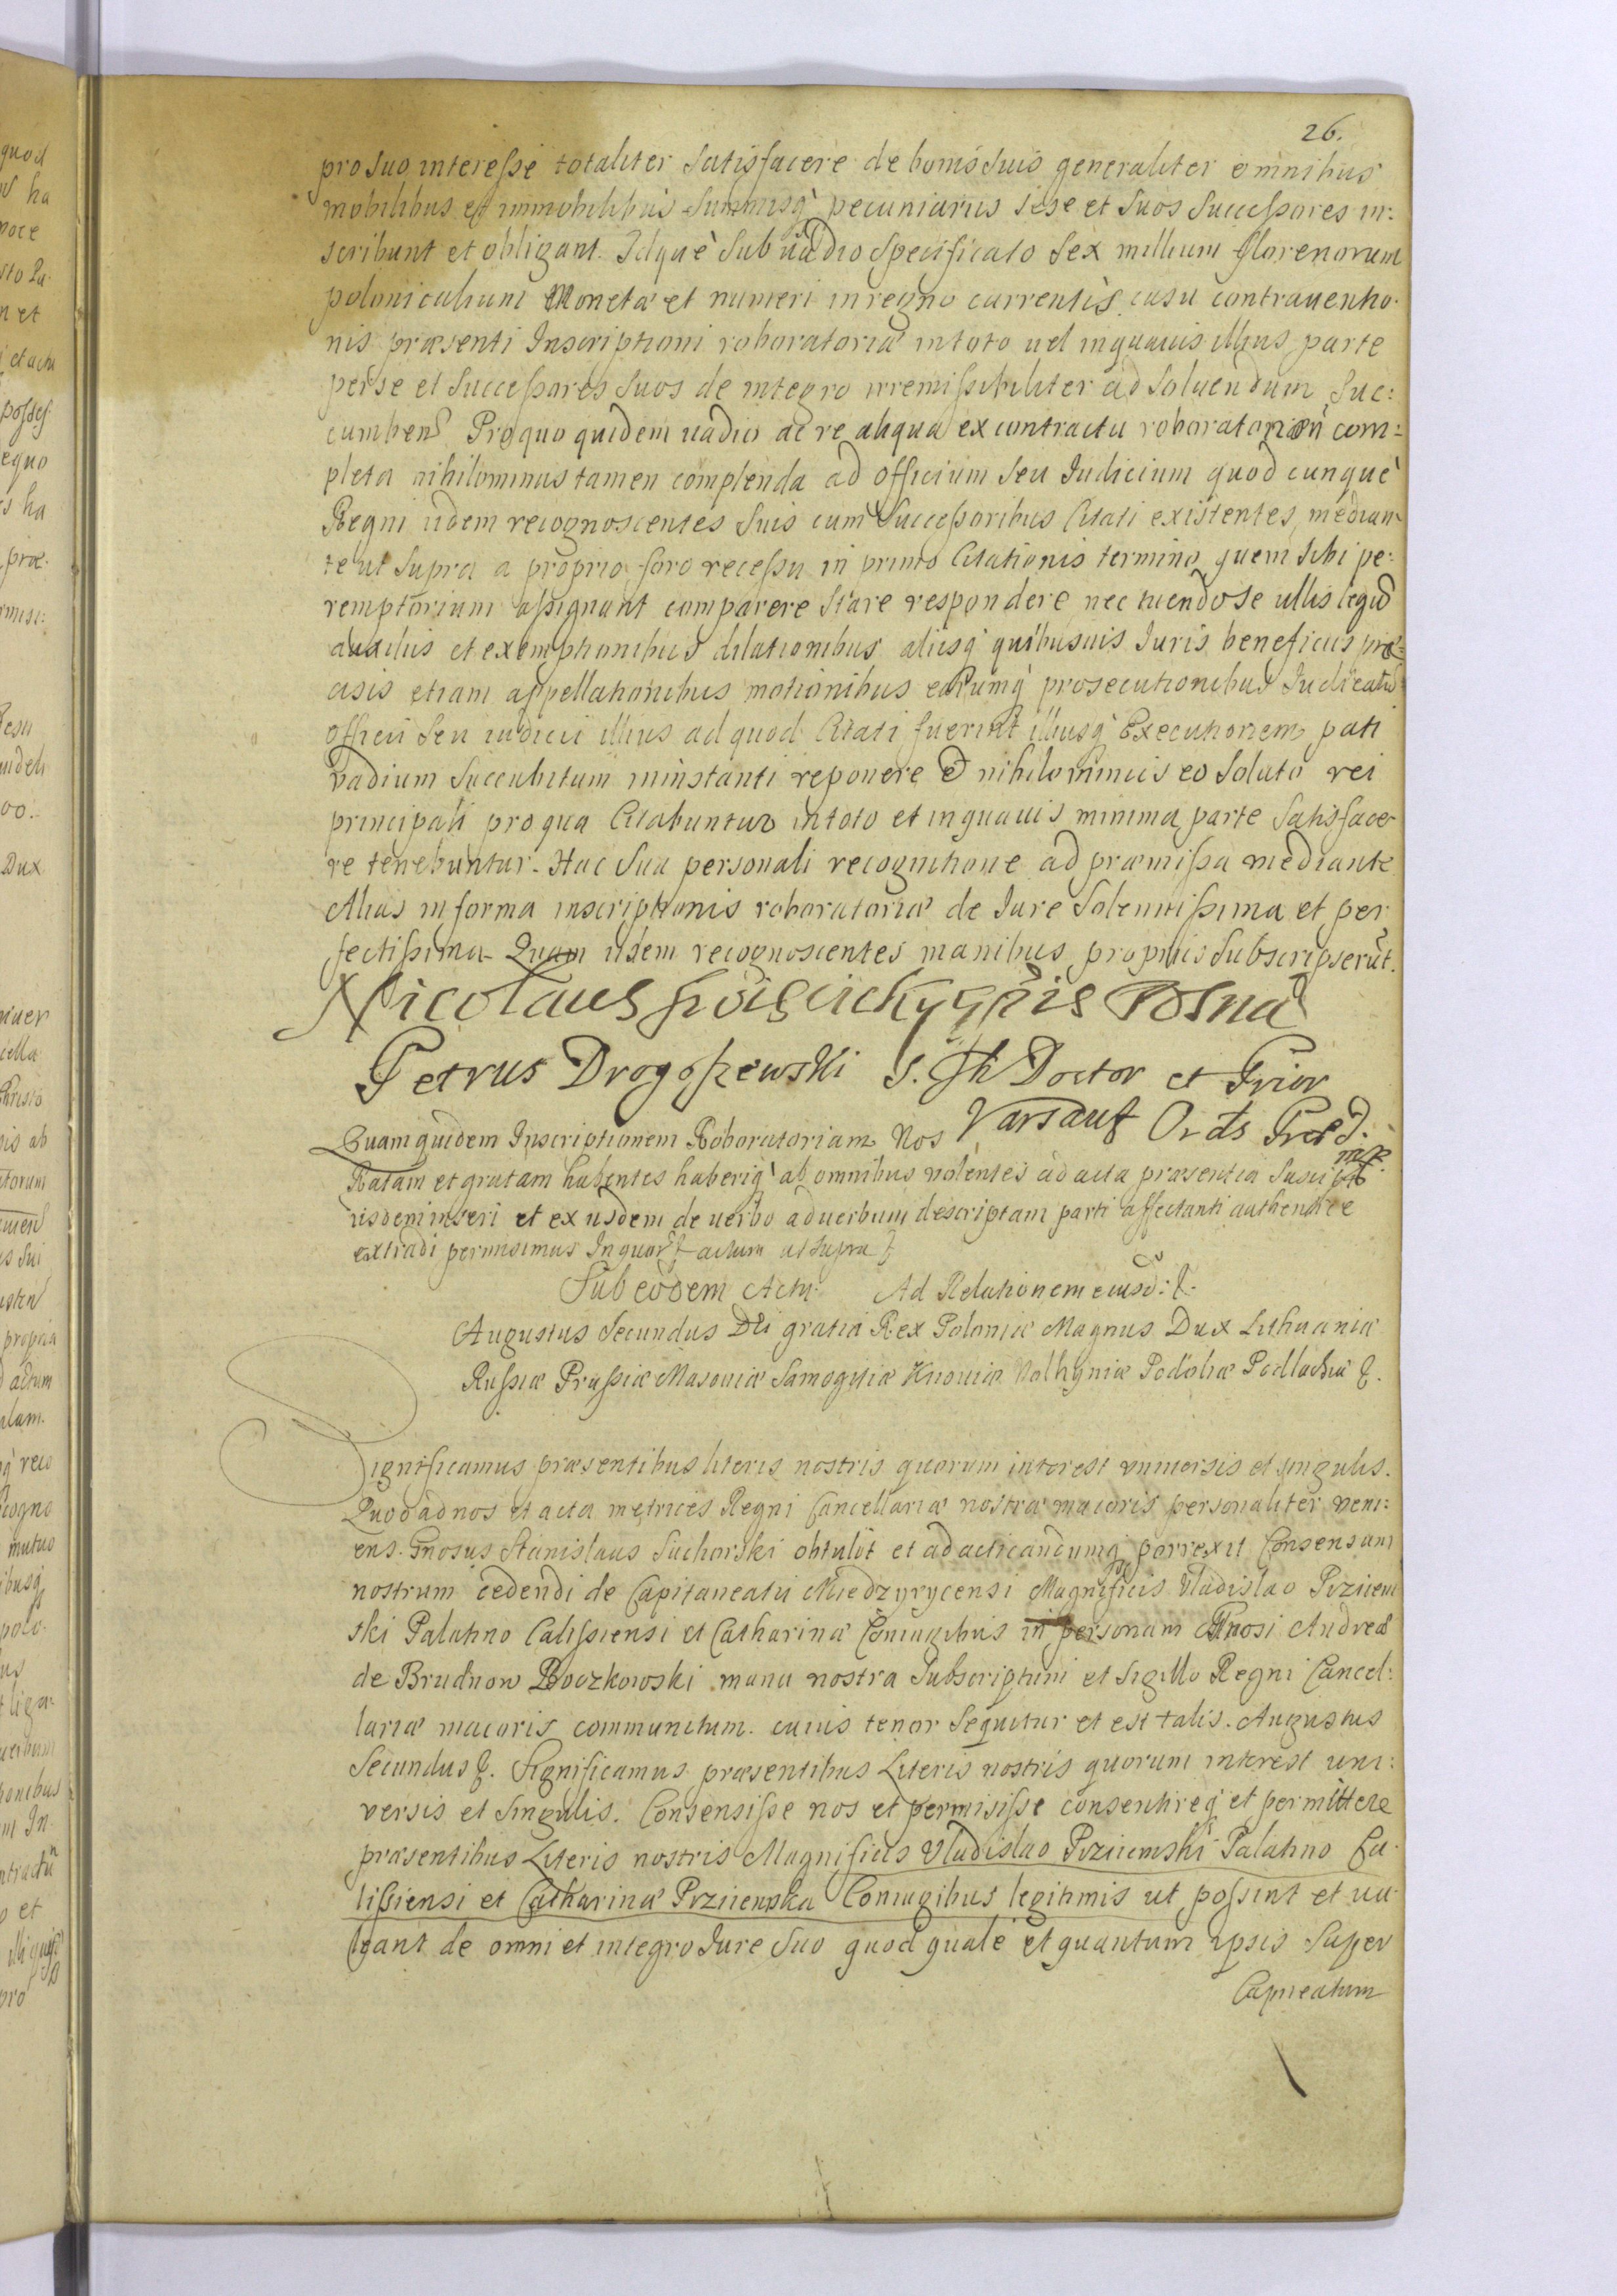 26.
pro suo interesse totaliter satisfacere de bonis suis generaliter omnibus
mobilibus et immobilibus summisq̀ pecuniariis sese et suos successores in:
scribunt et obligant. Idque sub vadio specificato sex millium florenorum
polonicalium Monetæ et numeri in regno currentis casu contrauentio-
nis præsenti Inscriptioni roboratoriæ in toto uel inquauis illius parte
per se et successores suos de integro irremissibiliter ad soluendum suc:
cumbent Pro quo quidem uadio ac re aliqua ex contractu roboratoria nõ com=
pleta nihilominus tamen complenda ad officium seu Iudicium quod cunquè
Regni iidem recognoscentes suis cum successoribus Citati existentes, median-
te ut supra a proprio foro recessu in primo Citationis termino quem sibi pe-
remptorium assignant comparere stare respondere nec tuendo se ullis legũ
auxiliis et exemptionibus dilationibus aliisq̀ quibusuis Iuris beneficiis præ=
cisis etiam appellationibus motionibus earumq̀ prosecutionibus Iudicatũ
officii seu iudicii illius ad quod Citati fuerint illiusq̀ Executionem pati
vadium succubitum in instanti reponere et nihilominus eo soluto rei
principali pro qua Citabuntur in toto et inquauis minima parte satisface-
re tenebuntur. Hac sua personali recognitione ad præmissa mediante
Alias in forma inscriptionis roboratoriæ de Iure solennissima et per
fectissima. Quam iidem recognoscentes manibus propriis subscripserũt.
Nicolaus Posna
Petrus Drogoszewski S. Th Doctor et Prior
Varsaus Ords Præd.
mp.
Quam quidem Inscriptionem Roboratoriam Nos
Ratam et gratam habentes haberiq̀ ab omnibus volentes ad acta præsentia suscipi
iisdem inseri et ex iisdem de uerbo ad uerbum descriptam parti affectanti authentice
extradi permisimus In quor &. actum ut supra &.
Sub eodem Actu. Ad Relationem eiusd: &.
Augustus Secundus Dei gratia Rex Poloniæ Magnus Dux Lithuaniæ
Russiæ Prussiæ Masouiæ Samogitiæ Kijouiæ Volhyniæ Podoliæ Podlachiæ &.
Significamus præsentibus literis nostris quorum interest vniuersis et singulis.
Quod ad nos et acta metrices Regni Cancellariæ nostræ maioris personaliter veni:
ens. Gnosus Stanislaus Suchorski obtulit et ad acticandumq̀ porrexit Consensum
nostrum cedendi de Capitaneatu Miedzyrycensi Magnificis Vladislao Przyiem
ski Palatino Calissiensi et Catharinæ Coniugibus in personam Gnosi Andreæ
de Brudnow Boczkowski manu nostra subscriptum et sigillo Regni Cancel:
lariæ maioris communitum. cuius tenor sequitur et est talis. Augustus
Secundus &. Significamus præsentibus Literis nostris quorum interest uni:
versis et singulis. Consensisse nos et permisisse consentireq̀ et permittere
præsentibus Literis nostris Magnificis Vladislao Prziiemski Palatino Ca-
lissiensi et Catharinæ Prziiemska Coniugibus legitimis ut possint et ua-
leant de omni et integro Iure suo quod quale et quantum ipsis super
Capneatum